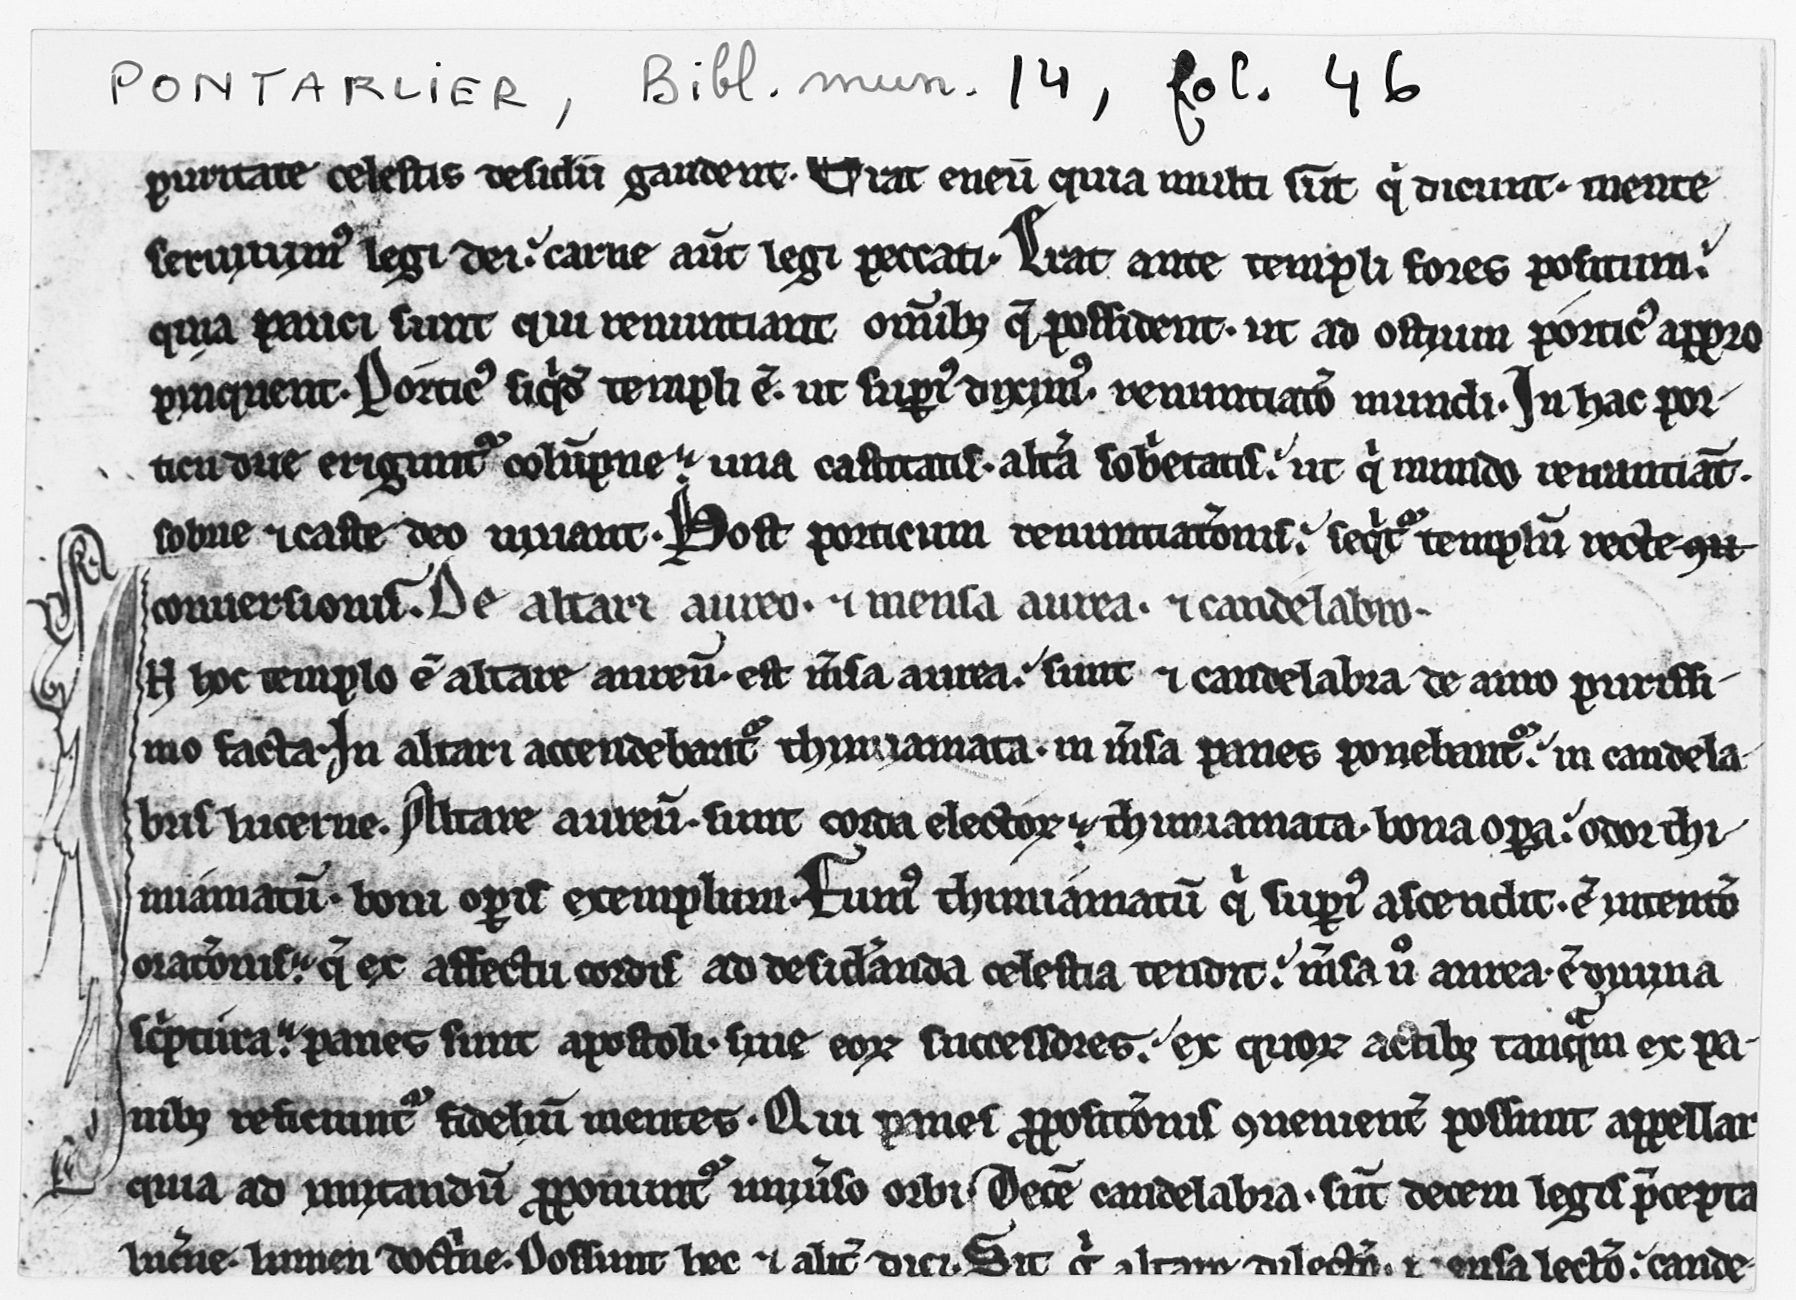 PONTARLIER, Bibl. mun. 14, fol. 46
puritate celestis desidii gaudent. Erat eneū quia multi sūt q̍ dicunt. mente
seruiuimꝰ legi dei. carne aūt legi peccati. Erat ante templi fores positum.
quia pauci sunt qui renuntiant om̄ibꝫ q̄ possident. ut ad ostium porticꝰ appro
pinquent. Porticꝰ siq̍d templi ē. ut sup̲iꝰ diximꝰ. renuntiatō mundi. In hac por-
ticu due erigunt᷑ colūpne. una castitatis. alt̄a sob̍etatis. ut q̍ mundo renuntiāt.
sobrie ⁊ caste deo uiuant. Post porticum renuntiatōnis. seq̍t᷑ templū recte
conuersionis. De altari aureo. ⁊ mensa aurea. ⁊ candelabro.
IN hoc templo ē altare aureū. est m̄sa aurea. sunt ⁊ candelabra de auro purissi-
mo facta. In altari accendebant᷑ thimiamata. in m̄sa panes ponebant᷑. in candela-
bris lucerne. Altare aureū. sunt corda electoꝝ. thimiamata. bona oꝑa. odor thi-
miamatū. boni oꝑis exemplum. Fumꝰ thimiamatū q̍ suꝑiꝰ ascendit. ē intentō
oratōnis. q̄ ex affectu cordis ad desid̄anda celestia tendit. m̄sa ů aurea. ē diuina
sc̍ptura. panes sunt apostoli. siue eoꝝ successores. ex quoꝝ actibꝫ tanq̄m ex pa-
nibꝫ reficiunt᷑ fidelīu mentes. Qui panes ꝓpositōnis ꝯuenient̄ possunt appellar
quia ad imitandū ꝓponunt᷑ uniūso orbi. Decē candelabra. sūt decem legis p̄cepta
luc̄ne. lumen doct̍ne. Possunt hec ⁊ alit̄ dici. Sit q̍ altare dilectō. mensa lectō. cande-